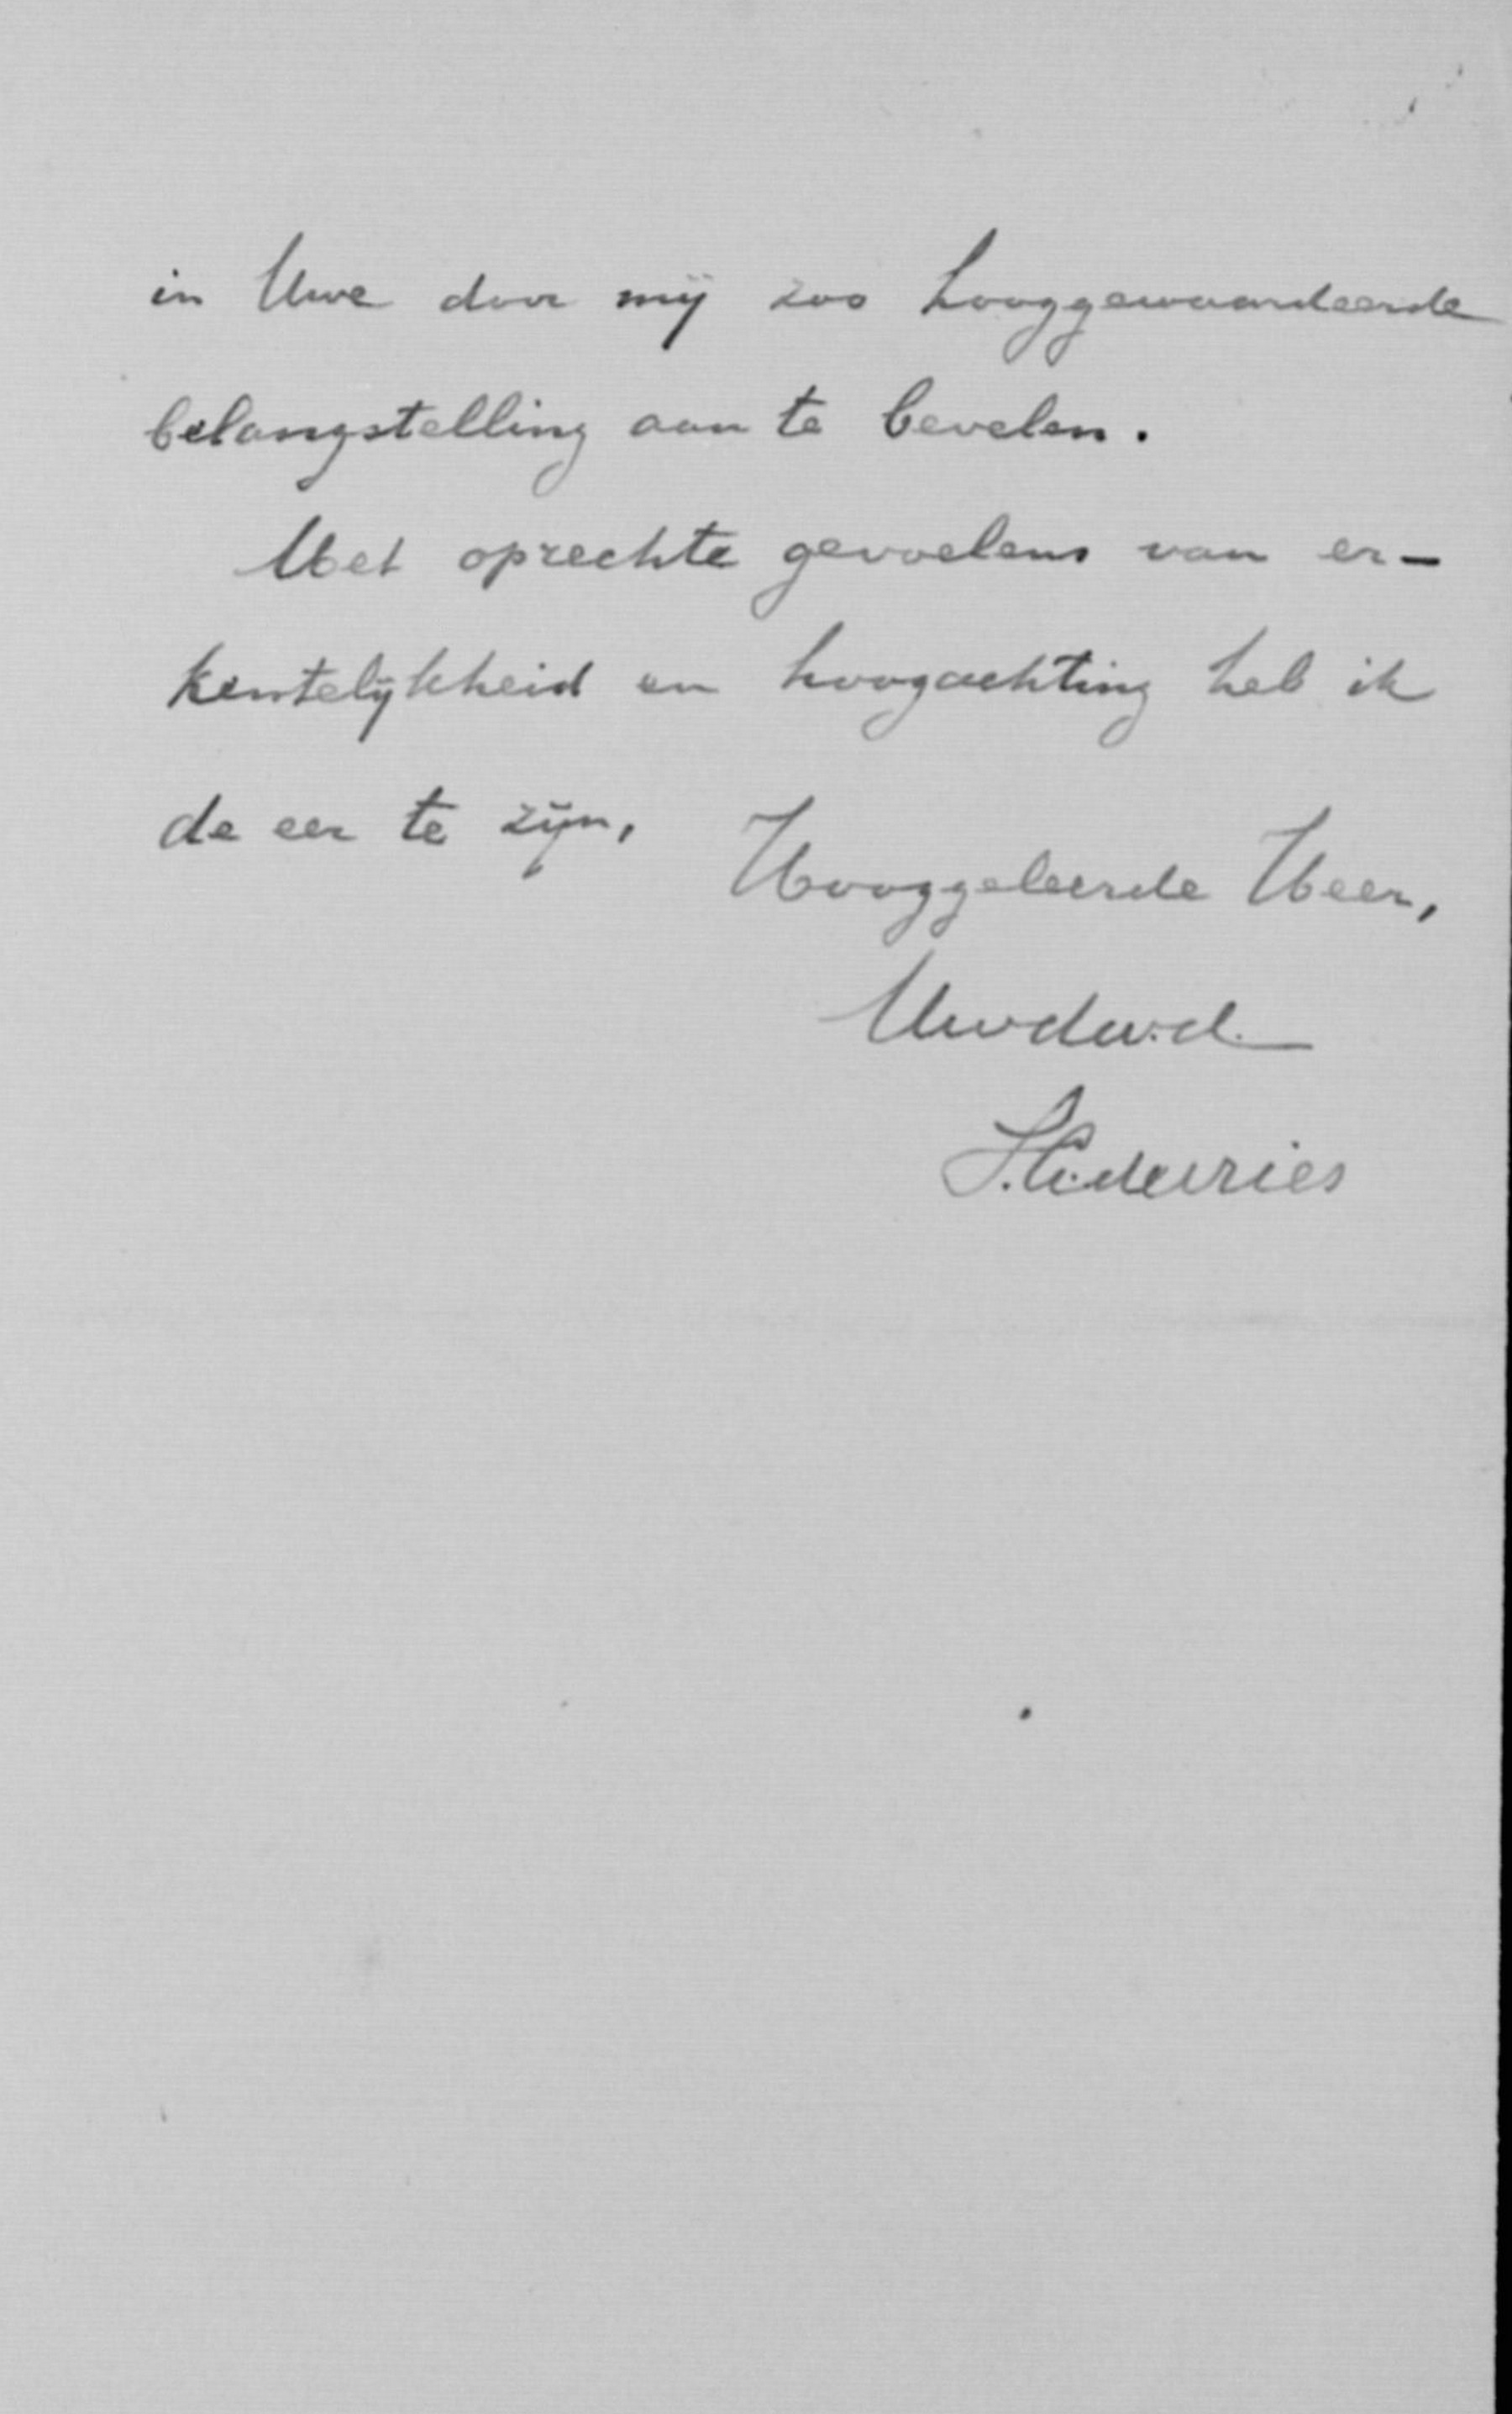 in Uwe door mij zoo hooggewaardeerde
belangstelling aan te bevelen.
Met oprechte gevoelens van er-
kentelijkheid en hoogachting heb ik
de eer te zijn,
Hooggeleerde Heer,
Uwdw.d.
S.C. de Vries